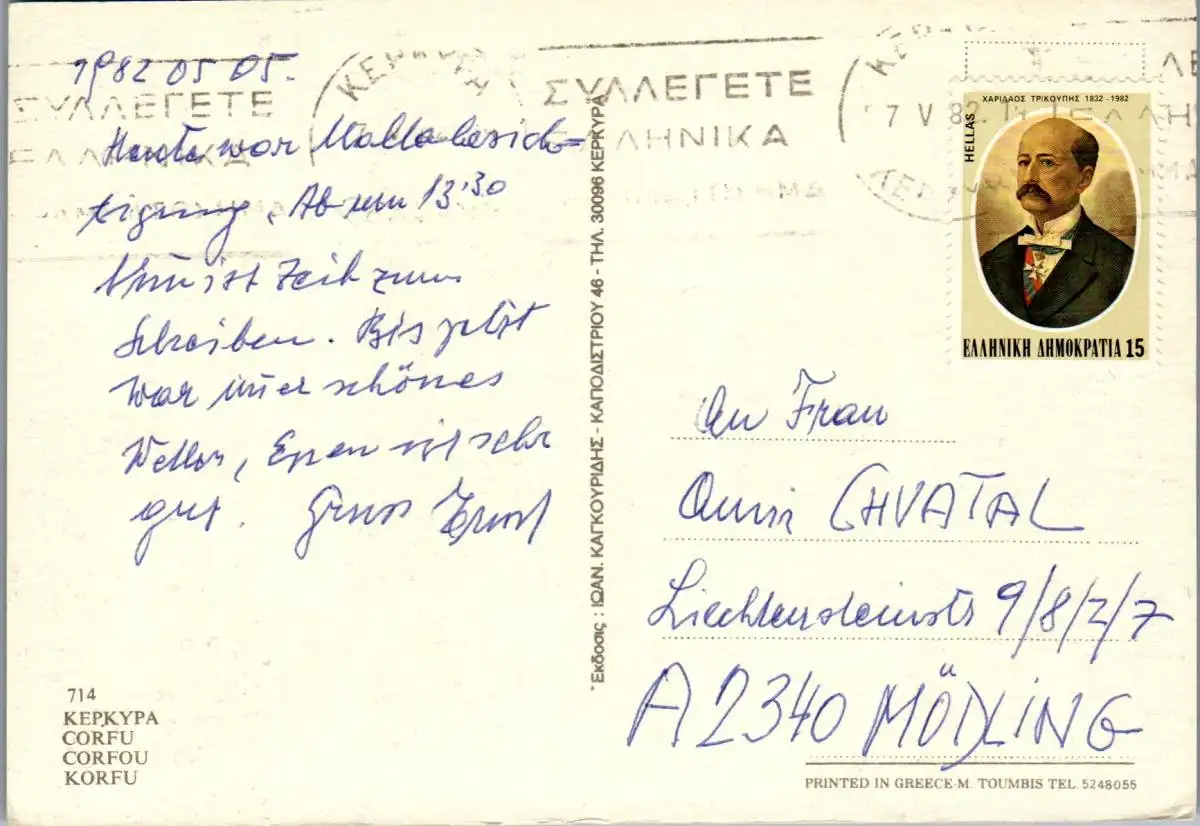 1982 05 05.
Heute war Maltabesich-
tigung, Ab um 13.30
Nun ist Zeit zum
Schreiben. Bis jetzt
war imer schönes
Wetter, Essen ist sehr
gut. Gruss Ernst
714
ΚΕΡΚΥΡΑ
CORFU
CORFOU
KORFU
Ἔκδοσις : ΙΩΑΝ. ΚΑΓΚΟΥΡΙΔΗΣ - ΚΑΠΟΔΙΣΤΡΙΟΥ 46 - ΤΗΛ. 30096 ΚΕΡΚΥΡΑ
ΣΥΛΛΕΓΕΤΕ
ΕΛΛΗΝΙΚΑ
ΚΕΡΚΥΡΑ
ΣΥΛΛΕΓΕΤΕ
ΛΗΝΙΚΑ
7 V 82
ΧΑΡΙΛΑΟΣ ΤΡΙΚΟΥΠΗΣ 1832-1982
HELLAS
ΕΛΛΗΝΙΚΗ ΔΗΜΟΚΡΑΤΙΑ 15
An Frau
Anni CHVATAL
Liechtensteinstr 9/8/2/7
A 2340 MÖDLING
PRINTED IN GREECE-M. TOUMBIS TEL. 5248055